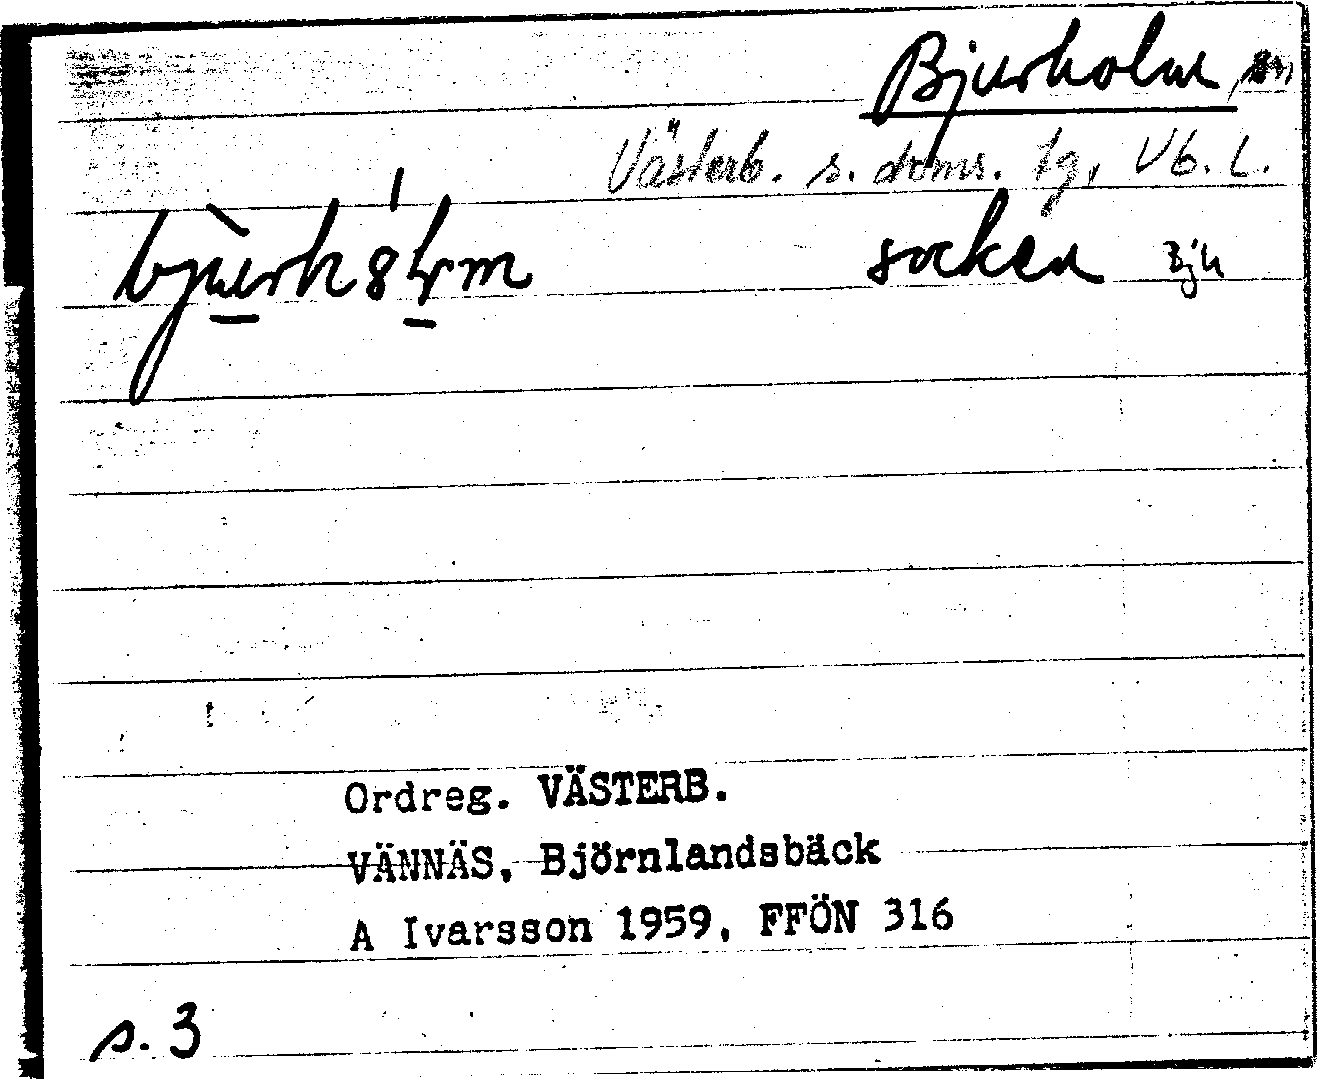 Bjurholm, sn
Västerb. s. doms. tg, Vb. L.
socken Bjh
Ordreg. VÄSTERB.
VÄNNÄS, Björnlandsbäck
A Ivarsson 1959, FFÖN 316
s. 3